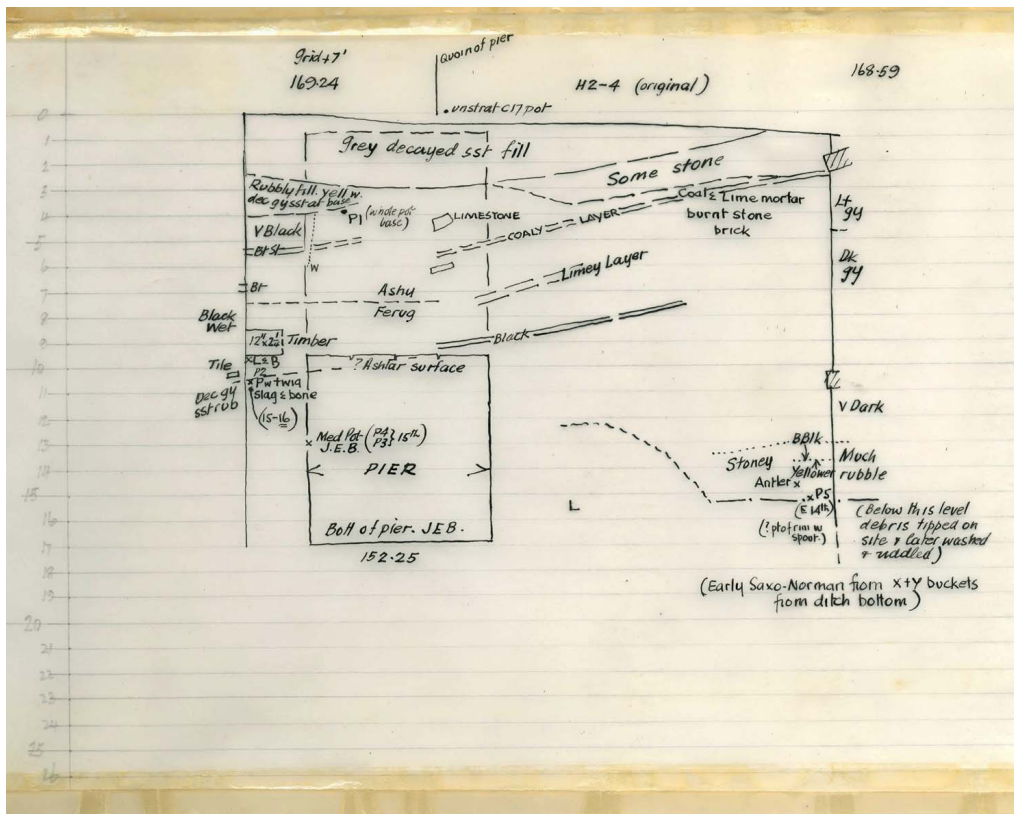 grid+7'
169.24
Quoin of pier
H2-4 (original)
168.59
.unstrat C17 pot
0
1
2
3
4
5
6
7
8
9
10
11
12
13
14
15
16
17
18
19
20
21
22
23
24
25
26
Grey decayed sst fill
Some stone
Rubbly fill. Yellow.
dec gy sst at base
P1 (whole pot
base)
LIMESTONE
COALY LAYER
Coal & Lime mortar
burnt stone
brick
Lt
gy
V Black
Bt St
W
Dk
gy
Limey Layer
Bt
Ashy
Ferug
Black
Wet
12" x 2¼"
Timber
Black
Tile
L & B
P2
? Ashlar surface
Dec gy
sst rub
Pw + twig
Slag & bone
(15-16)
V Dark
Med Pot (P4 P3} 15th)
J.E.B.
PIER
BBlk
Stoney
Yellower
Much
rubble
Antler x
P5
(E 14th)
(? pt of rim w
spout.)
(Below this level
debris tipped on
site & later washed
& ruddled)
L
Bott of pier. JEB.
152.25
(Early Saxo-Norman from x+y buckets
from ditch bottom)